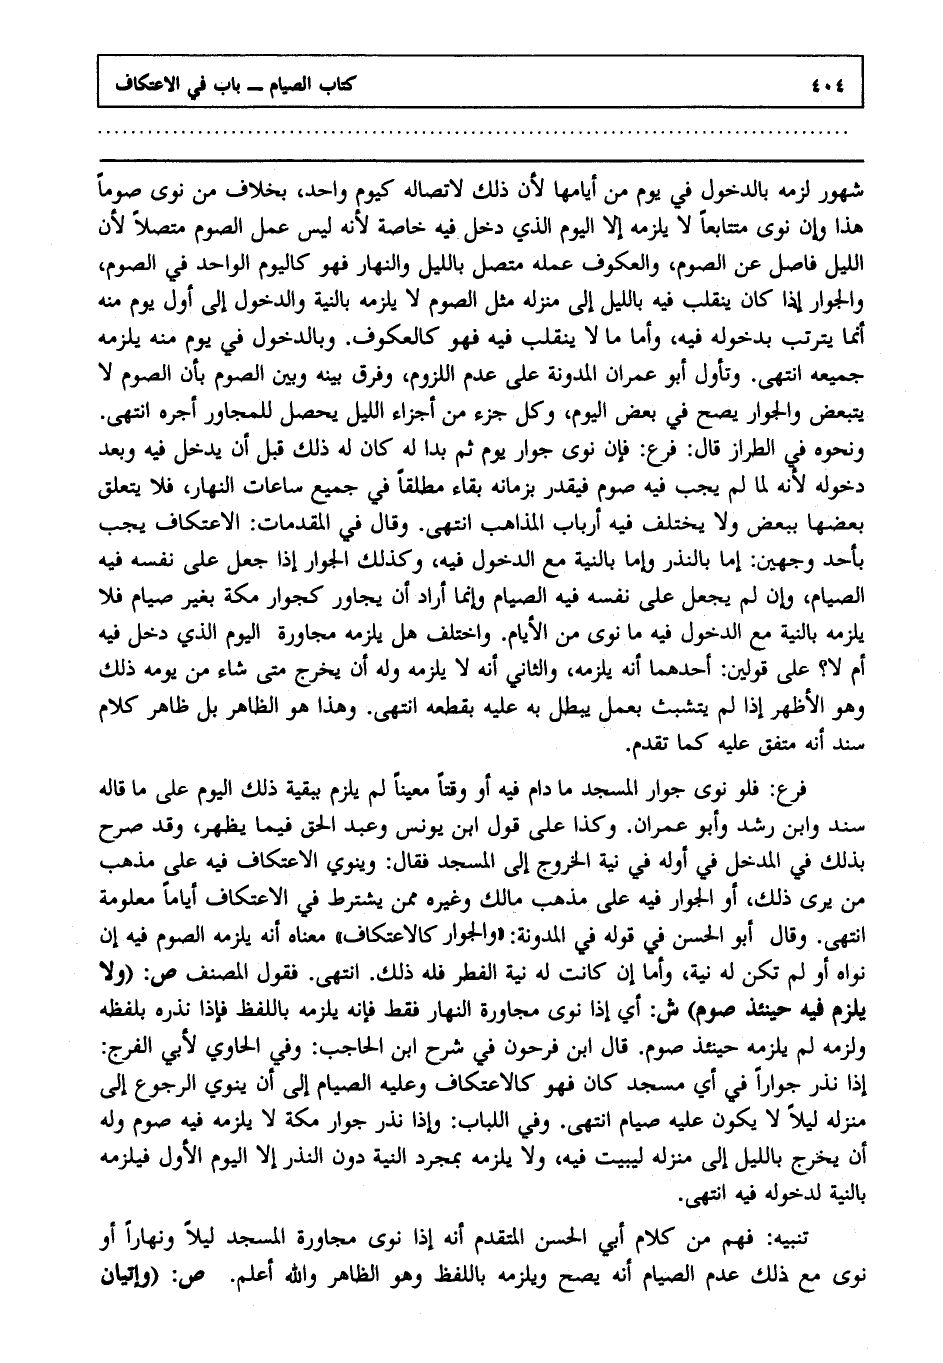 ٤٠٤ كتاب الصيام ــ باب في الاعتكاف
شهور لزمه بالدخول في يوم من أيامها لأن ذلك لاتصاله كيوم واحد، بخلاف من نوى صوماً
هذا وإن نوى متتابعاً لا يلزمه إلا اليوم الذي دخل فيه خاصة لأنه ليس عمل الصوم متصلاً لأن
الليل فاصل عن الصوم، والعكوف عمله متصل بالليل والنهار فهو كاليوم الواحد في الصوم،
والجوار إذا كان ينقلب فيه بالليل إلى منزله مثل الصوم لا يلزمه بالنية والدخول إلى أول يوم منه
أنما يترتب بدخوله فيه، وأما ما لا ينقلب فيه فهو كالعكوف. وبالدخول في يوم منه يلزمه
جميعه انتهى. وتأول أبو عمران المدونة على عدم اللزوم، وفرق بينه وبين الصوم بأن الصوم لا
يتبعض والجوار يصح في بعض اليوم، وكل جزء من أجزاء الليل يحصل للمجاور أجره انتهى.
ونحوه في الطراز قال: فرع: فإن نوى جوار يوم ثم بدا له كان له ذلك قبل أن يدخل فيه وبعد
دخوله لأنه لما لم يجب فيه صوم فيقدر بزمانه بقاء مطلقاً في جميع ساعات النهار، فلا يتعلق
بعضها ببعض ولا يختلف فيه أرباب المذاهب انتهى. وقال في المقدمات: الاعتكاف يجب
بأحد وجهين: إما بالنذر وإما بالنية مع الدخول فيه، وكذلك الجوار إذا جعل على نفسه فيه
الصيام، وإن لم يجعل على نفسه فيه الصيام وإنما أراد أن يجاور كجوار مكة بغير صيام فلا
يلزمه بالنية مع الدخول فيه ما نوى من الأيام. واختلف هل يلزمه مجاورة اليوم الذي دخل فيه
أم لا؟ على قولين: أحدهما أنه يلزمه، والثاني أنه لا يلزمه وله أن يخرج متى شاء من يومه ذلك
وهو الأظهر إذا لم يتشبث بعمل يبطل به عليه بقطعه انتهى. وهذا هو الظاهر بل ظاهر كلام
سند أنه متفق عليه كما تقدم.
فرع: فلو نوى جوار المسجد ما دام فيه أو وقتاً معيناً لم يلزم ببقية ذلك اليوم على ما قاله
سند وابن رشد وأبو عمران. وكذا على قول ابن يونس وعبد الحق فيما يظهر، وقد صرح
بذلك في المدخل في أوله في نية الخروج إلى المسجد فقال: وينوي الاعتكاف فيه على مذهب
من يرى ذلك، أو الجوار فيه على مذهب مالك وغيره ممن يشترط في الاعتكاف أياماً معلومة
انتهى. وقال أبو الحسن في قوله في المدونة: «والجوار كالاعتكاف» معناه أنه يلزمه الصوم فيه إن
نواه أو لم تكن له نية، وأما إن كانت له نية الفطر فله ذلك. انتهى. فقول المصنف ص: (ولا
يلزم فيه حينئذ صوم) ش: أي إذا نوى مجاورة النهار فقط فإنه يلزمه باللفظ فإذا نذره بلفظه
ولزمه لم يلزمه حينئذ صوم. قال ابن فرحون في شرح ابن الحاجب: وفي الحاوي لأبي الفرج:
إذا نذر جواراً في أي مسجد كان فهو كالاعتكاف وعليه الصيام إلى أن ينوي الرجوع إلى
منزله ليلاً لا يكون عليه صيام انتهى. وفي اللباب: وإذا نذر جوار مكة لا يلزمه فيه صوم وله
أن يخرج بالليل إلى منزله ليبيت فيه، ولا يلزمه بمجرد النية دون النذر إلا اليوم الأول فيلزمه
بالنية لدخوله فيه انتهى.
تنبيه: فهم من كلام أبي الحسن المتقدم أنه إذا نوى مجاورة المسجد ليلاً ونهاراً أو
نوى مع ذلك عدم الصيام أنه يصح ويلزمه باللفظ وهو الظاهر والله أعلم. ص: (وإتيان